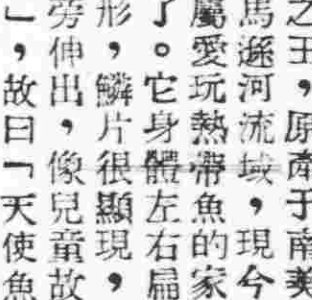 之王,原產于南美
馬遜河流域,現今
屬愛玩熱帶魚的家
了。它身體左右扁
形,鱗片很顯現,
旁伸出,像兒童故
」,故曰「天使魚